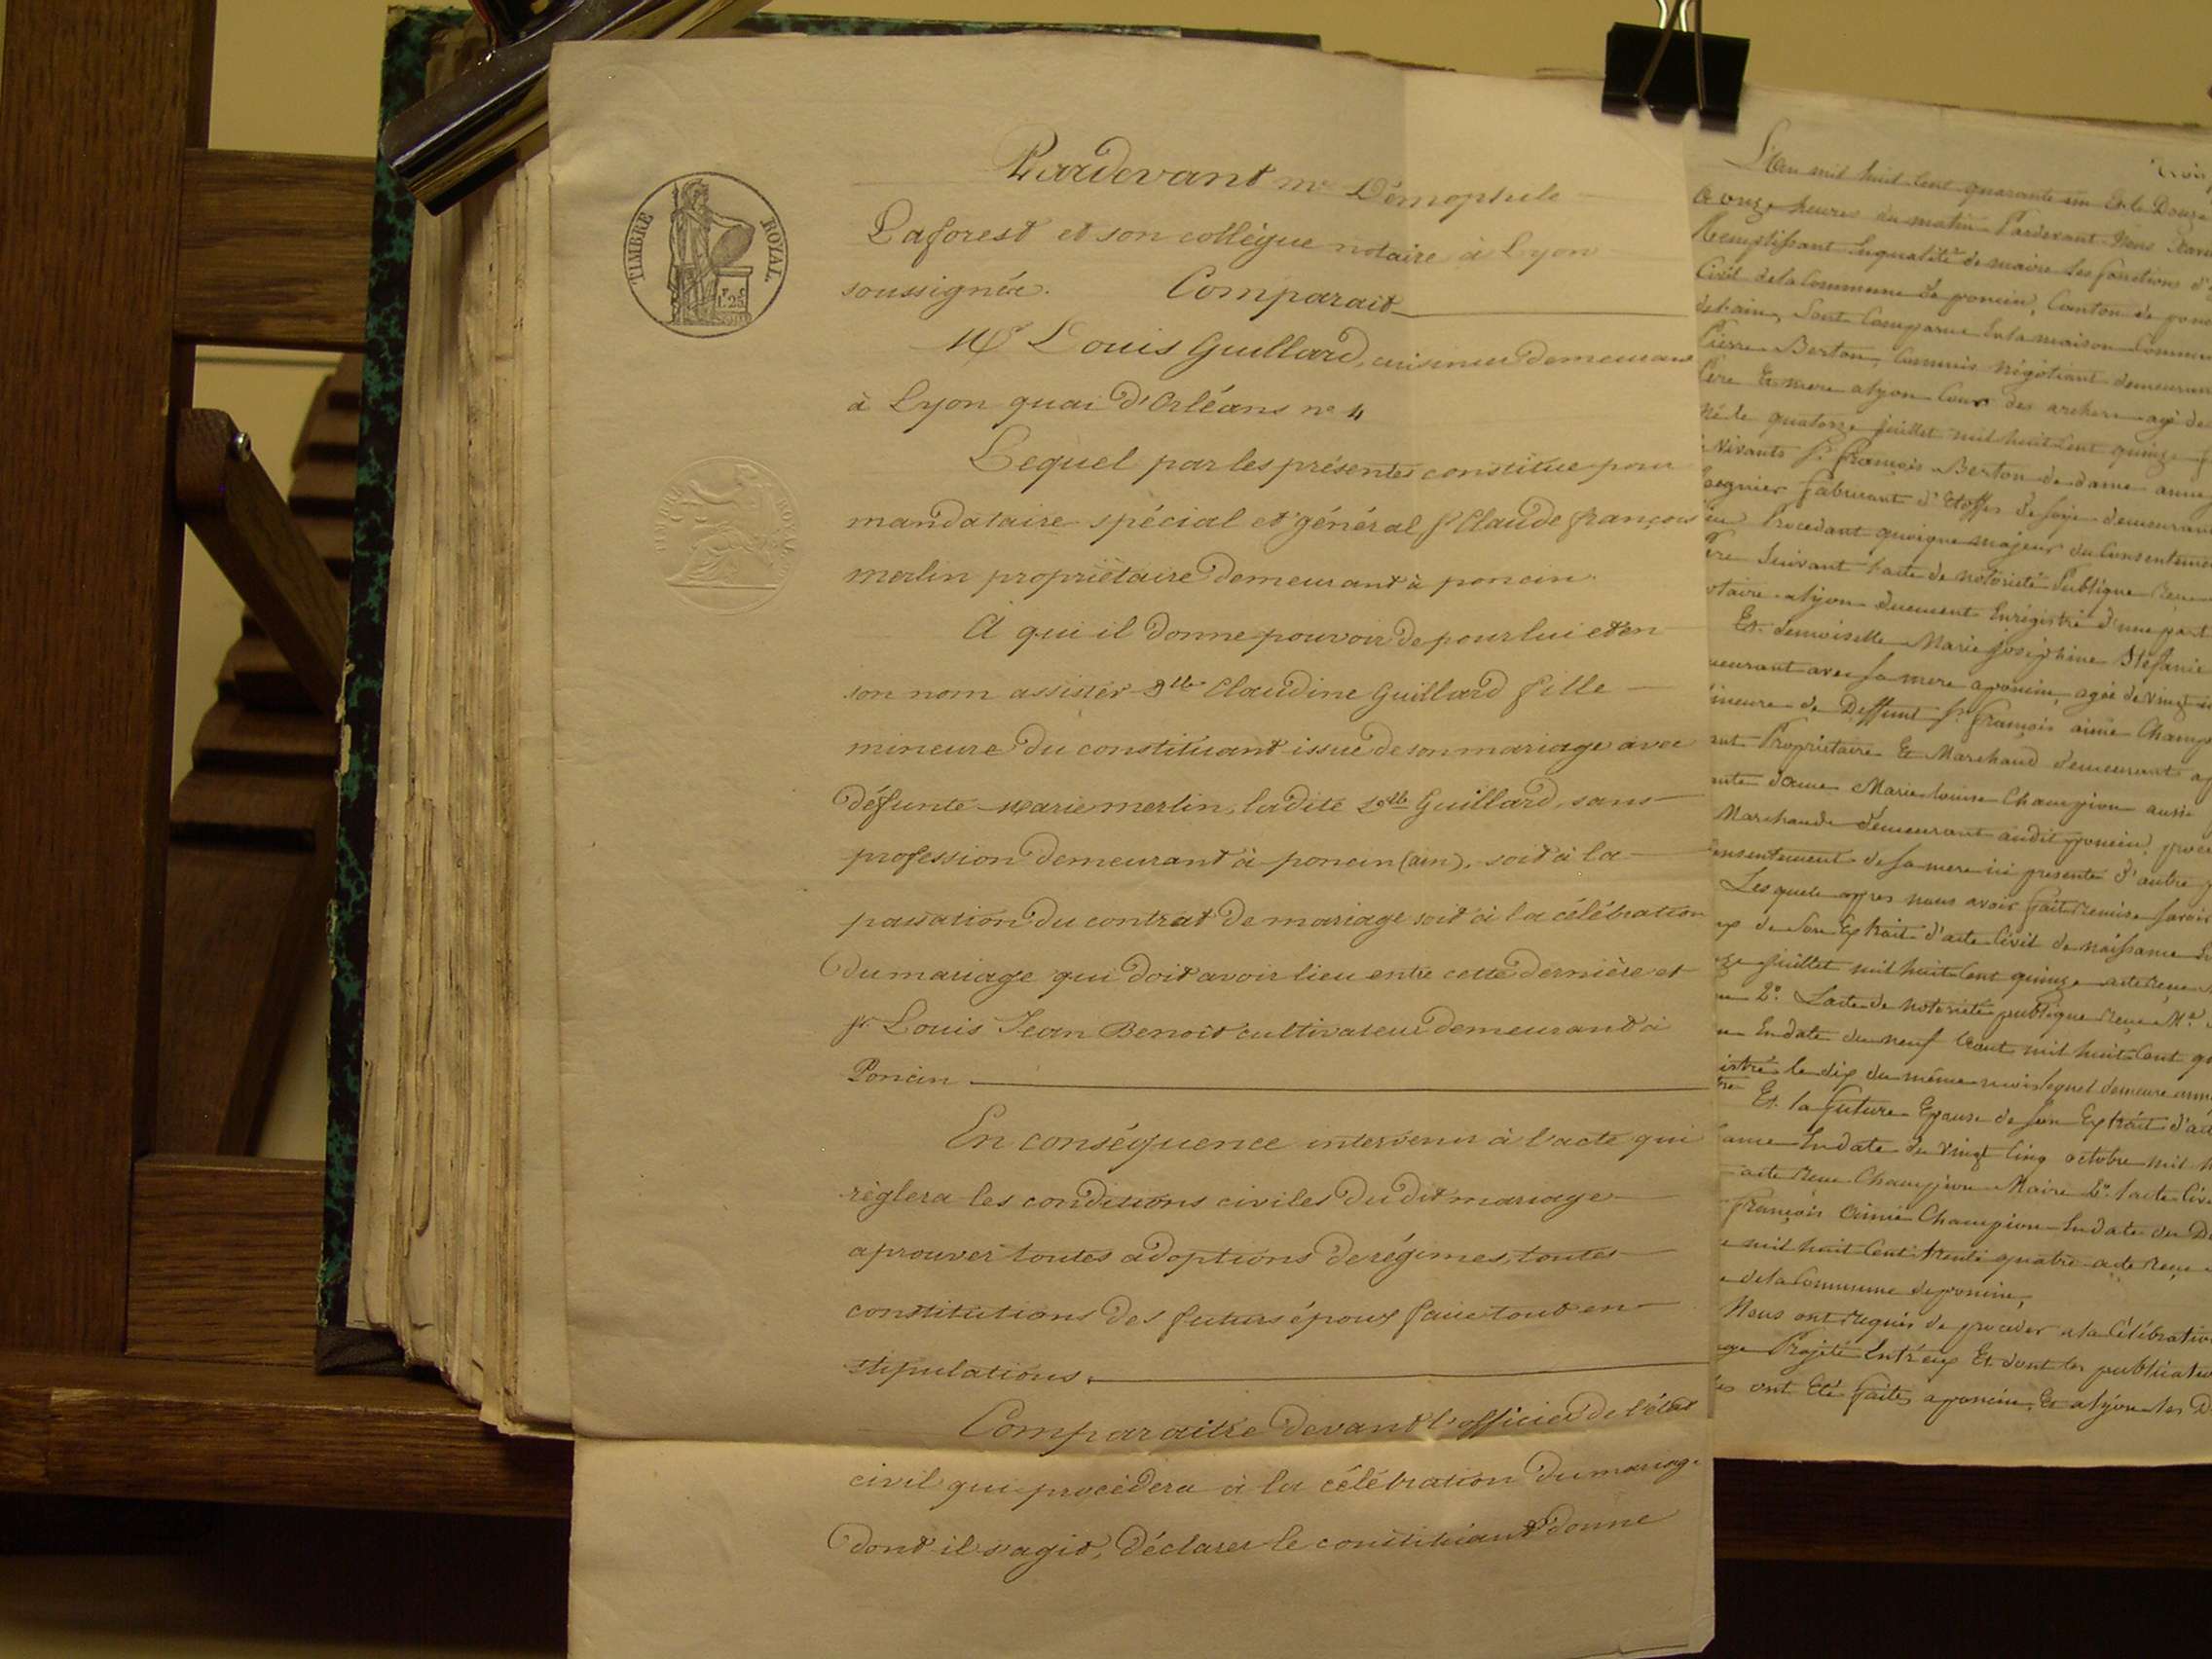 TIMBRE ROYAL
F. C.
1.25
TIMBRE ROYAL
Pardevant Me Démophile
Laforest et son collègue notaire à Lyon
soussignés. Comparait
Mr Louis Guillard, cuisinier demeurant
à Lyon quai d'Orléans no 4
Lequel par les présentes constitue pour
mandataire spécial et général sr Claude françois
merlin propriétaire demeurant à poncin.
A qui il donne pouvoir de pour lui et en
son nom assister Dlle Claudine Guillard fille
mineure du constituant issue de son mariage avec
défunte marie merlin, ladite Dlle Guillard, sans
profession demeurant à poncin (ain), soit à la
passation du contrat de mariage soit à la célébration
du mariage qui doit avoir lieu entre cette dernière et
sr Louis Jean Benoit cultivateur demeurant à
Poncin
En conséquence intervenir à l'acte qui
règlera les conditions civiles du dit mariage
aprouver toutes adoptions de régimes, toutes
constitutions des futurs époux faire tout en
stipulations.
Comparaitre devant l'officier de l'état
civil qui procèdera à la célébration du mariage
dont il s'agit, déclarer le constituant donne
L'an mil huit Cent quarante un Et le Douze
a onze heures du matin Pardevant Nous
Remplissant la qualité de maire les fonction d'
Civil de la Commune de poncin, Canton de
de l'ain, Sont Comparus En la maison Commune
Pierre Berton, Commis Négotiant demeurant
Père Et mere a lyon Cour des archers agé de
Né le quatorze juillet mil huit Cent quinze
Vivants Sr françois Berton de dame anne
fabricant d'Etoffes de soye demeurant
Procedant quoique majeur du Consentement
Père Suivant l'acte de notorieté Publique
a lyon duement Enrégistré d'une part
Et demoiselle Marie josephine Stéfanie
avec sa mere a poncin, agée de vingt
mineure de Deffunt Sr françois aimé
Proprietaire Et Marchand demeurant
dame Marie louise Champion aussi
Marchande demeurant audit poncin,
consentement de sa mere ici presente d'autre
Lesquels apres nous avoir fait remise savoir
de son Extrait d'acte Civil de naissance
juillet mil huit Cent quinze
2o. L'acte de notorieté publique
En date du neuf aout mil huit Cent
le dix du même mois lequel demeure
Et la future Epouse de son Extrait d'
En date du vingt Cinq octobre mil
acte Champion Maire 2o. l'acte
françois Aimé Champion En date du
mil huit Cent trente quatre acte
de la Commune de poncin,
Nous ont requis de proceder a la Célébration
Projeté Entr'eux Et dont les publications
ont Eté faites a poncin, Et a lyon les